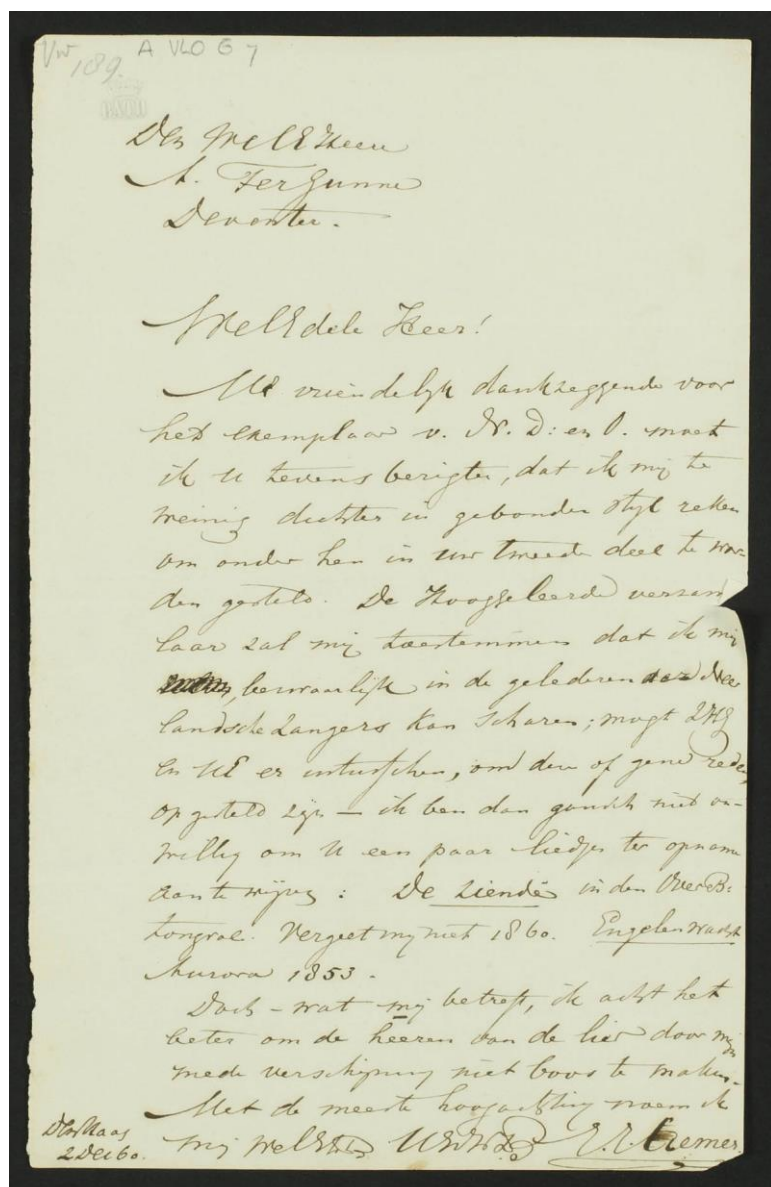 Vw 189.
A VLO G 7
Den WelEHeer
A. Ter Gunne
Deventer.
WelEdele Heer!
UE vriendelijk dankzeggende voor
het exemplaar v. N. D: en O. moet
ik U tevens berigten, dat ik mij te
weinig dichter in gebonden styl reken
om onder hen in uw tweede deel te wor-
den gesteld. De Hooggeleerde verzam
laar zal mij toestemmen dat ik mij
bezwaarlijk in de gelederen der Nee
landsche Zangers kan scharen; mogt ZHG
en UE er intusschen, om deze of gene reden,
op gesteld zijn — ik ben dan gansch niet on-
willig om U een paar liedjes ter opname
aan te wijzen: De ziende in den
Vergeet mij niet 1860. Engelenwacht
Aurora 1853.
Doch – wat mij betreft, ik acht het
beter om de heeren van de lier door mijn
mede verschijning niet boos te maken.
Met de meeste hoogachting noem ik
mij WelEd UEdWD J. J. Cremer.
Den Haag
2 Dec 60.